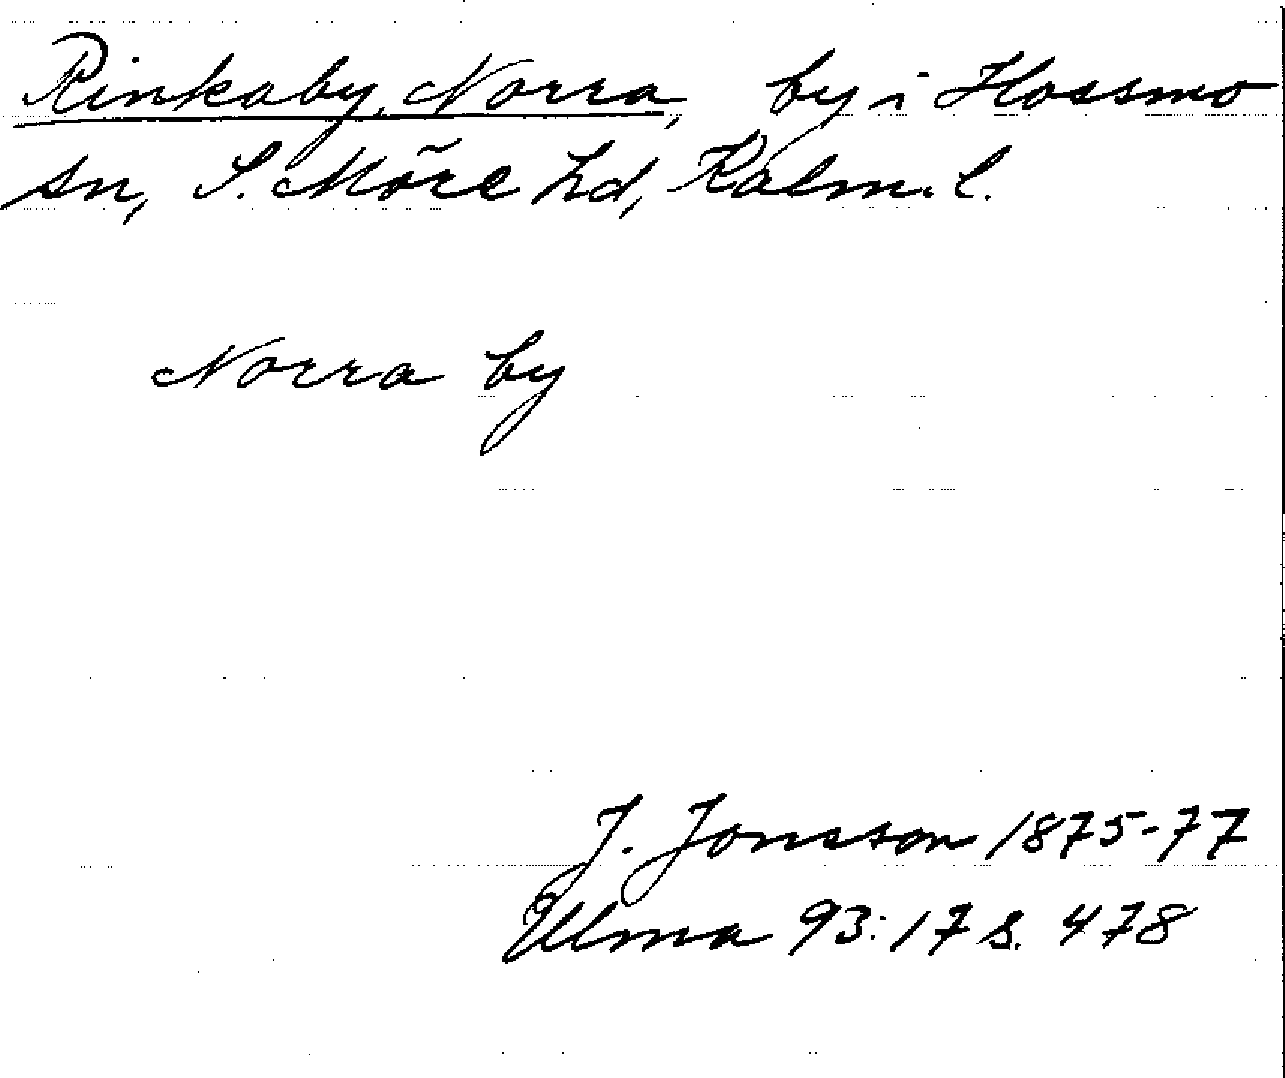 Rinkaby, Norra, by i Hossmo
sn, S. Möre hd, Kalm. l.
Norra by
J. Jonsson 1875-77
Ulma 93:17 s. 478